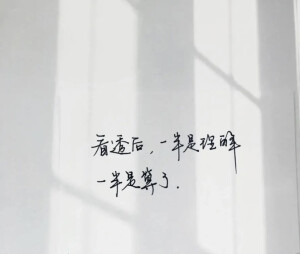 看透后，一半是理解
一半是算了.